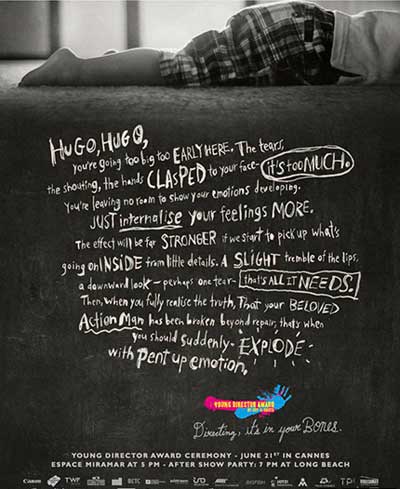 HUGO, HUGO,
you're going too big too EARLY HERE. The tears,
the shouting, the hands CLASPED to your face- it's too MUCH.
You're leaving no room to show your emotions developing.
JUST internalise your feelings MORE.
The effect will be far STRONGER if we start to pick up what's
going on INSIDE from little details. A SLIGHT tremble of the lips,
a downward look – perhaps one tear – that's ALL IT NEEDS.
Then, when you fully realise the truth, That your BELOVED
Action Man has been broken beyond repair, that's when
you should suddenly - EXPLODE -
with pent up emotion.
YOUNG DIRECTOR AWARD
Directing, it's in your Bones.
YOUNG DIRECTOR AWARD CEREMONY - JUNE 21ST IN CANNES
ESPACE MIRAMAR AT 5 PM - AFTER SHOW PARTY: 7 PM AT LONG BEACH
Canon TWP BETC